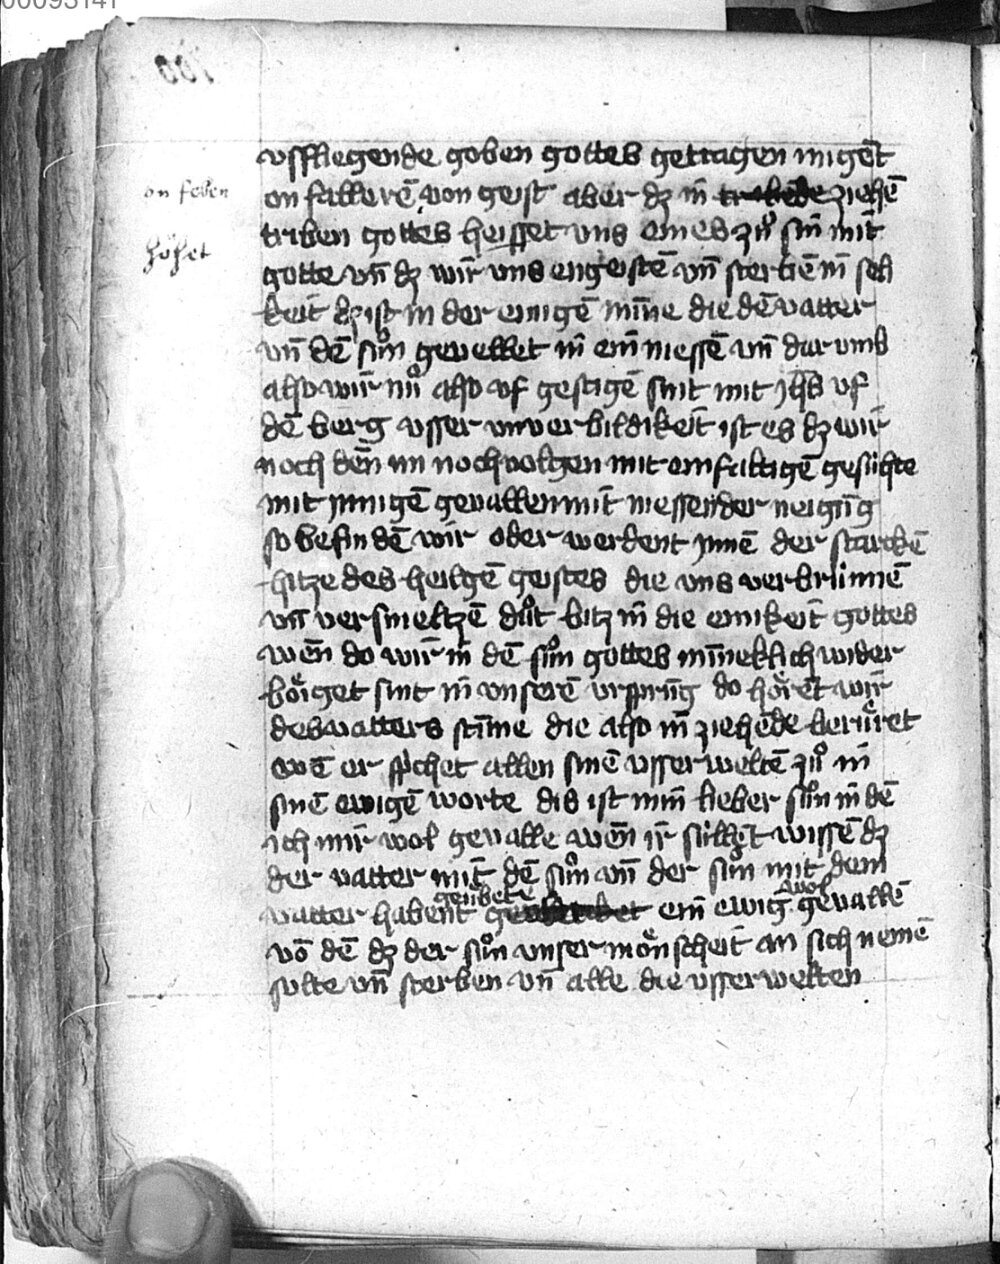 00093141
100
vsffliegende goben gottes getragen migēt
on feben
on fallerē von geist aber dz in ziehē
triben gottes heisset vns eines zuͦ sin mit
höhet
gotte vn̄ dz wir vns engeistē vn̄ sterbē in seli
keit dz ist in der einigē mīne die dē vatter
vn̄ dē suͦn geuellet in eim niessē vn̄ dar vmb
also wir nuͦ also vf gestigē sint mit jhs vf
dē berg vsser vnuerbildikeit ist es dz wir
noch dēn im noch volgen mit einfaltigē gesichte
mit jnnigē geuallen mit niessender neigūg
so befindē wir oder werdent jnnē der starckē
hitze des heilgē geistes die vns verbrūnnē
vn̄ versmeltzē duͦt bitz in die einikeit gottes
wēn do wir in dē suͦn gottes mīneklich wider
böiget sint in vnserē vrsprūg do hörēt wir
des vatters stīme die also in ziehēde berüret
wē er sp̄chet allen sinē vsserweltē zuͦ in
sinē ewigē worte dis ist min lieber suͦn in dē
ich mir wol geualle wēn ir süllēt wissē dz
der vatter mit dē suͦn vn̄ der suͦn mit dem
geübete wol
vatter habent ein ewig geuallē
vō dē dz der suͦn vnser mönscheit an sich nemē
solte vn̄ sterben vn̄ alle die vsserwelten